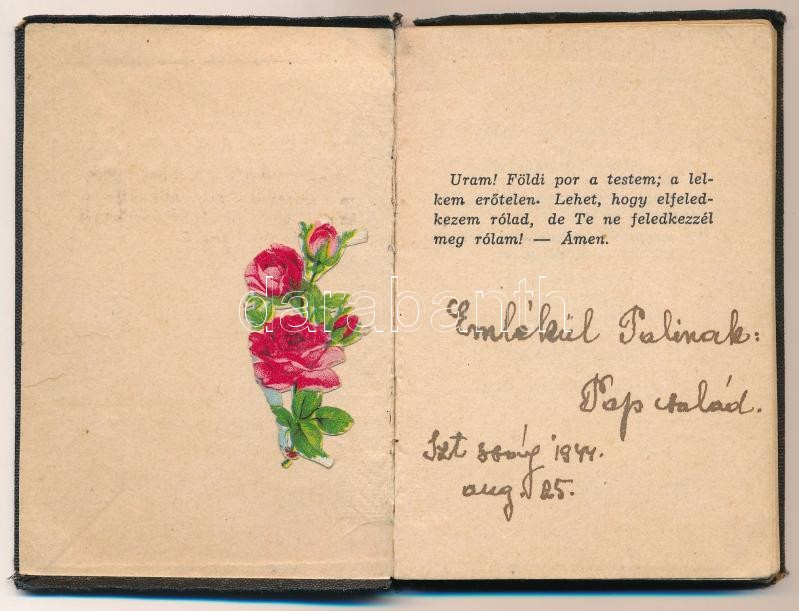 Uram! Földi por a testem; a lel-
kem erőtelen. Lehet, hogy elfeled-
kezem rólad, de Te ne feledkezzél
meg rólam! — Ámen.
darabanth
Emlékül Palinak:
Pap család.
Szt 1944.
aug. 25.